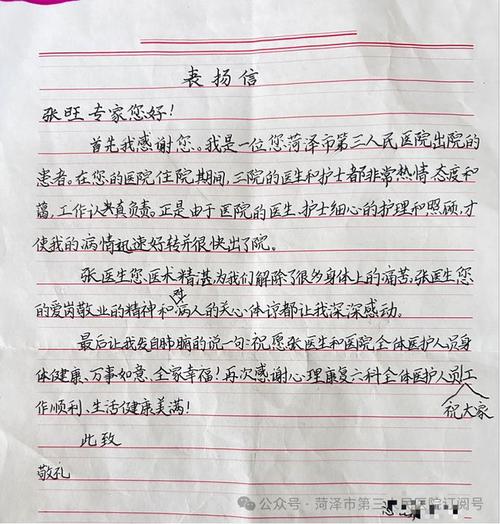 表扬信
张旺专家您好！
首先我感谢您。我是一位您菏泽市第三人民医院出院的
患者。在您的医院住院期间，三院的医生和护士都非常热情态度和
蔼，工作认真负责。正是由于医院的医生、护士细心的护理和照顾，才
使我的病情迅速好转并很快出了院。
张医生您医术精湛为我们解除了很多身体上的痛苦，张医生您
的爱岗敬业的精神和对病人的关心体谅都让我深深感动。
最后让我发自肺腑的说一句：祝愿张医生和医院全体医护人员身
体健康、万事如意、全家幸福！再次感谢心理康复六科全体医护人员祝大家工
作顺利、生活健康美满！
此致
敬礼
公众号·菏泽市第三人民医院订阅号